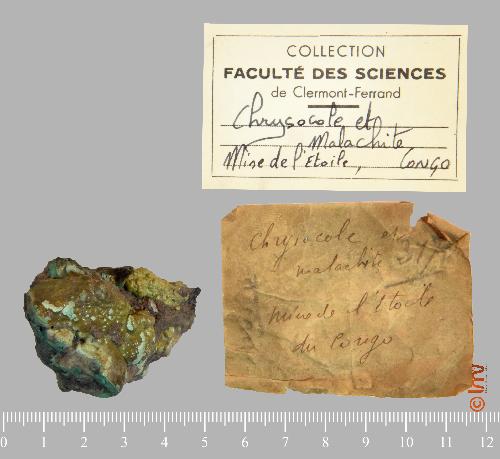 COLLECTION
FACULTÉ DES SCIENCES
de Clermont-Ferrand
Chrysocole et
Malachite
Mine de l'Etoile, CONGO
Chrysocole et
malachite
mine de l'étoile
du Congo
© lmv
0 1 2 3 4 5 6 7 8 9 10 11 12